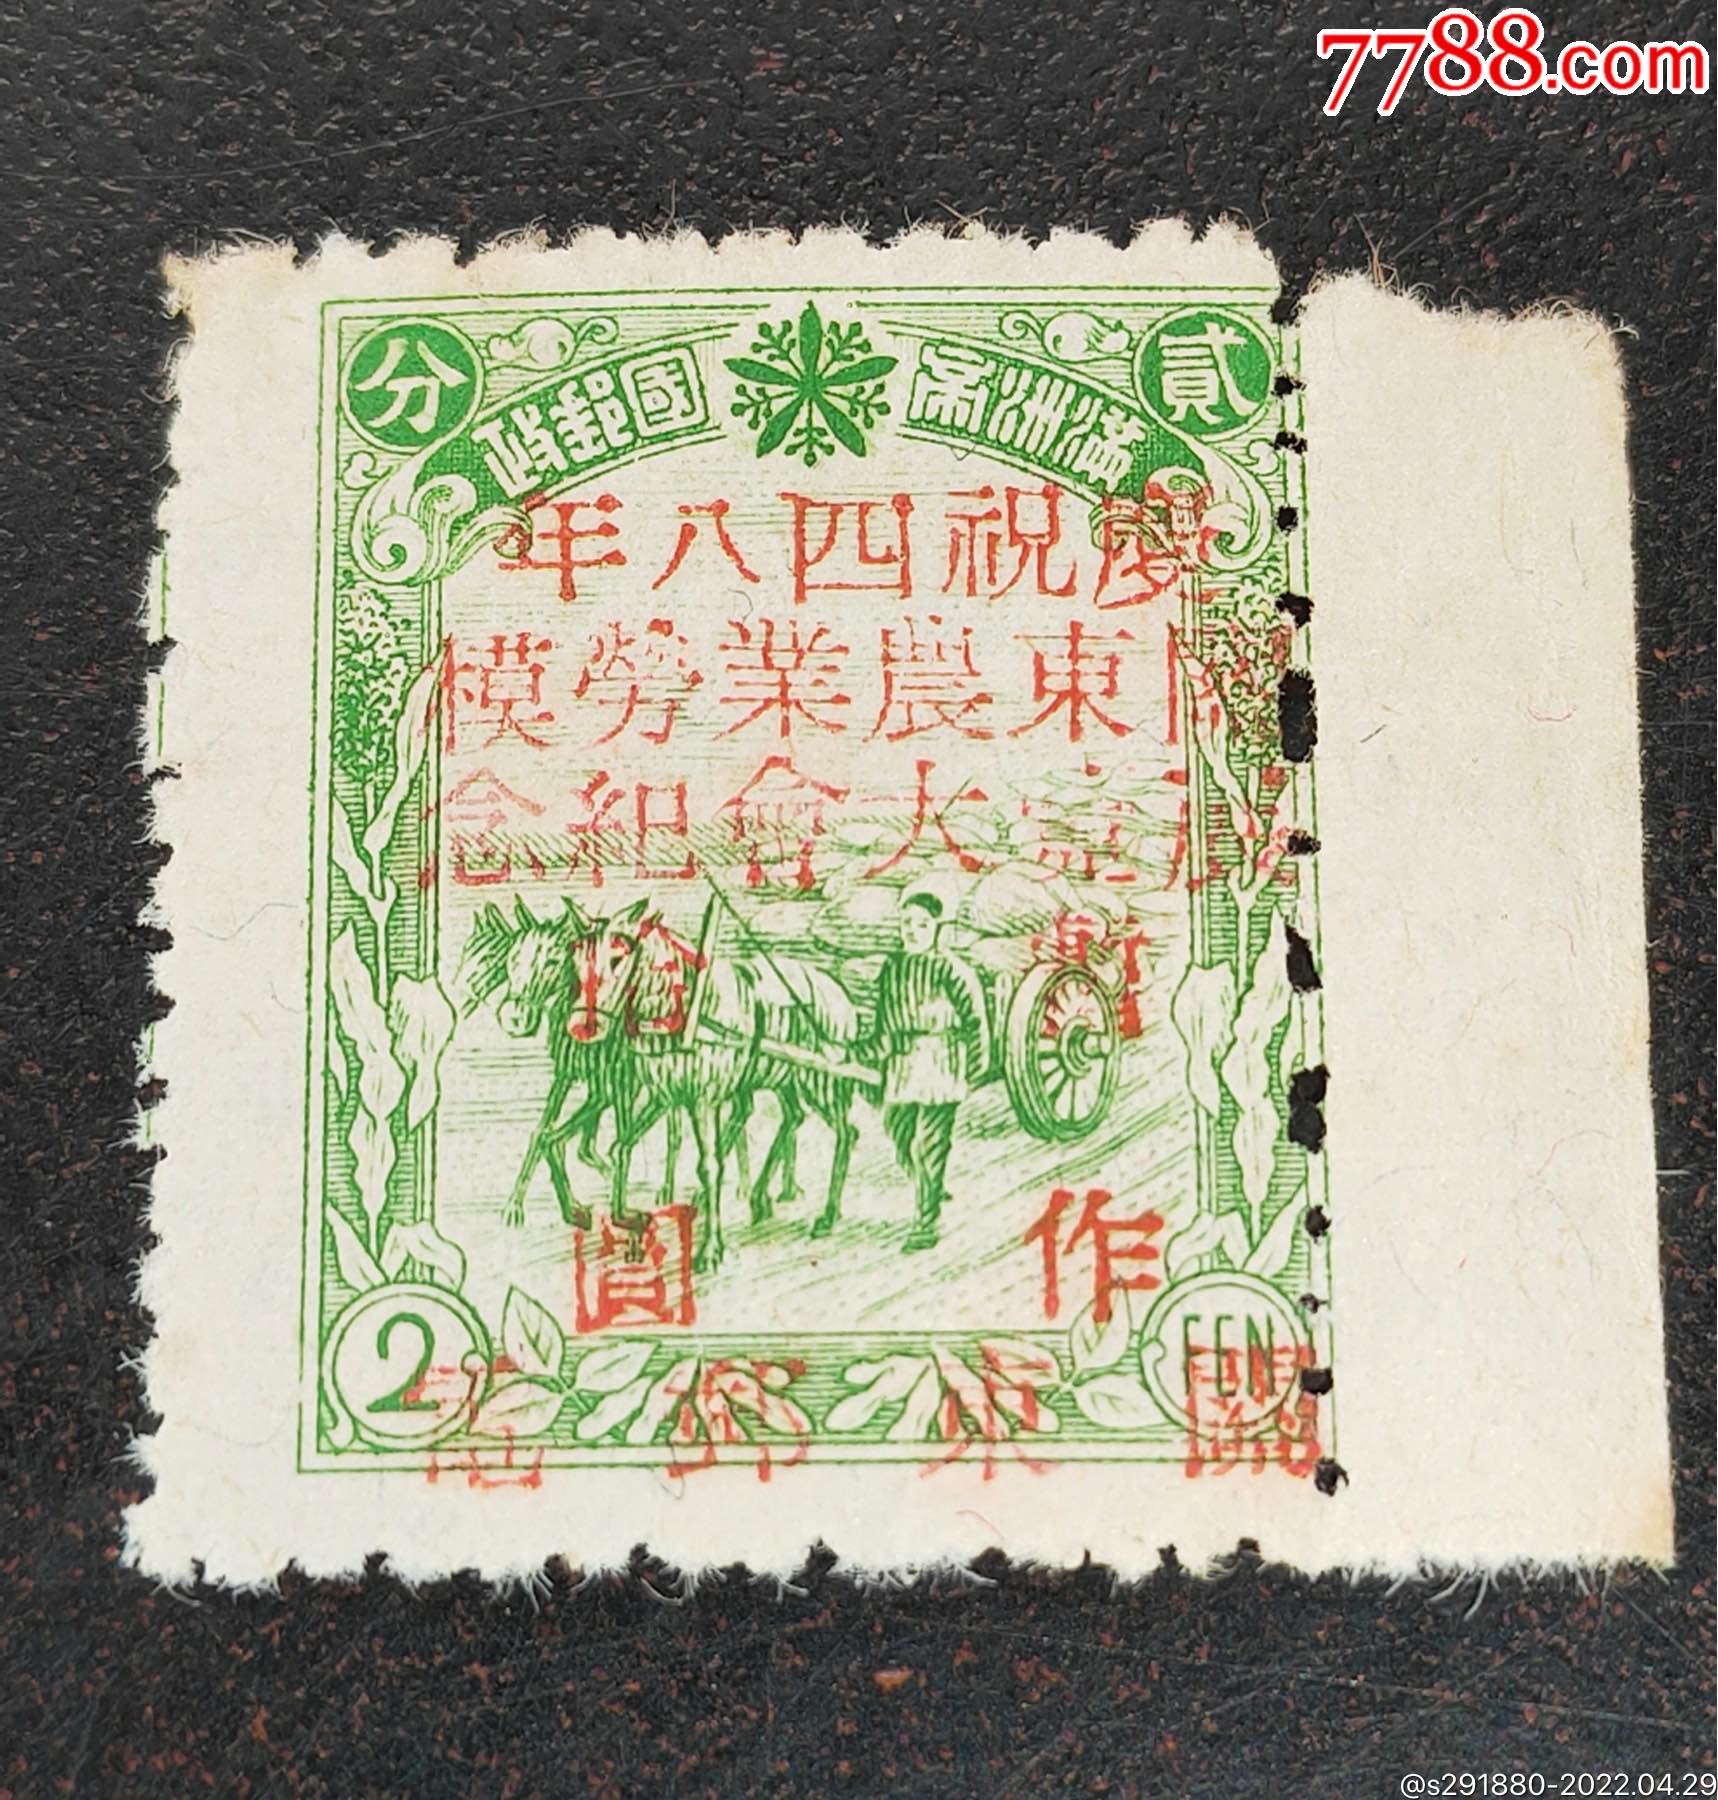 7788.com
貳
滿洲帝國郵政
分
慶祝四八年
關東農業勞模
展覽大會紀念
暫作
拾圓
2
FEN
關東郵電
@s291880-2022.04.29